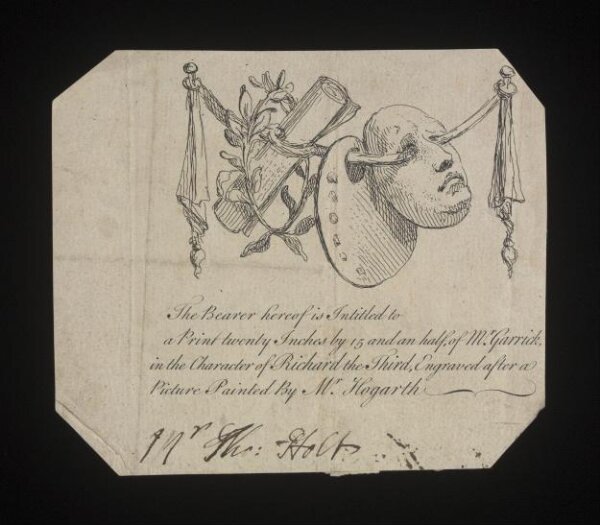 The Bearer hereof is Intitled to
a Print twenty Inches by 15 and an half, of Mr. Garrick
in the Character of Richard the Third, Engraved after a
Picture Painted By Mr. Hogarth
Mr Tho: Holt